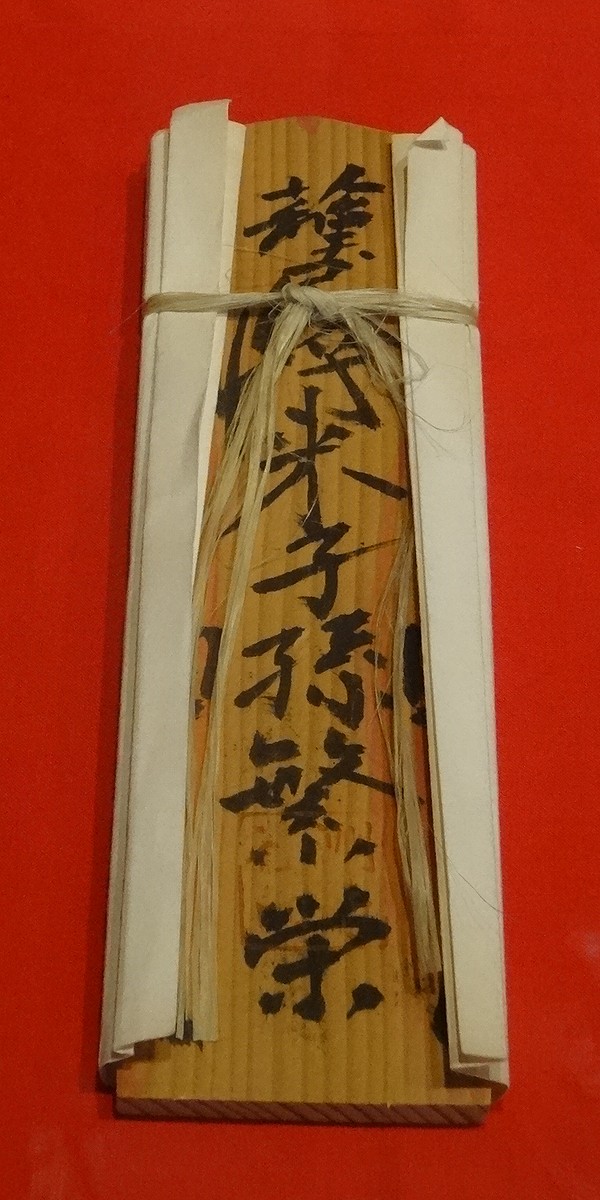 蘇民将来子孫繁栄